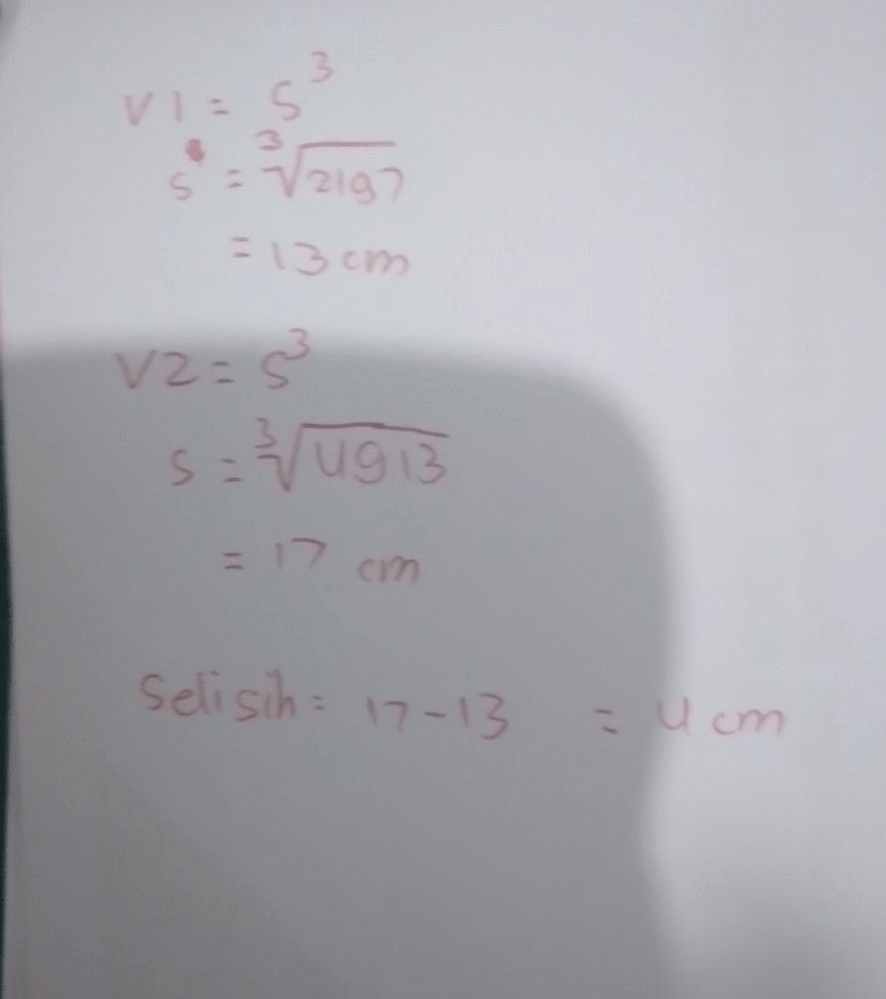 V1 = S³
s = ³√2197
= 13 cm
V2 = S³
s = ³√4913
= 17 cm
Selisih = 17-13 = 4 cm